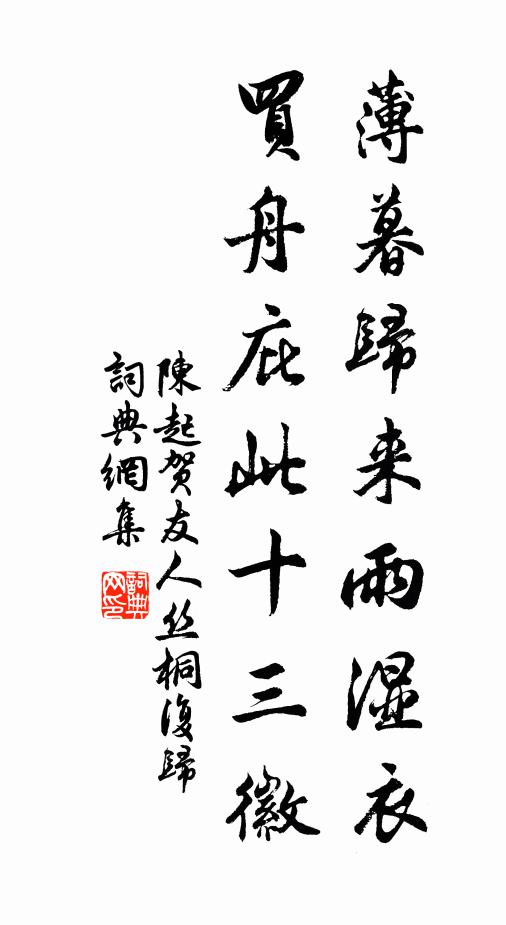 薄暮歸来雨湿衣
買舟庇此十三徽
陳起賀友人丝桐復歸
詞典網集
詞典网印